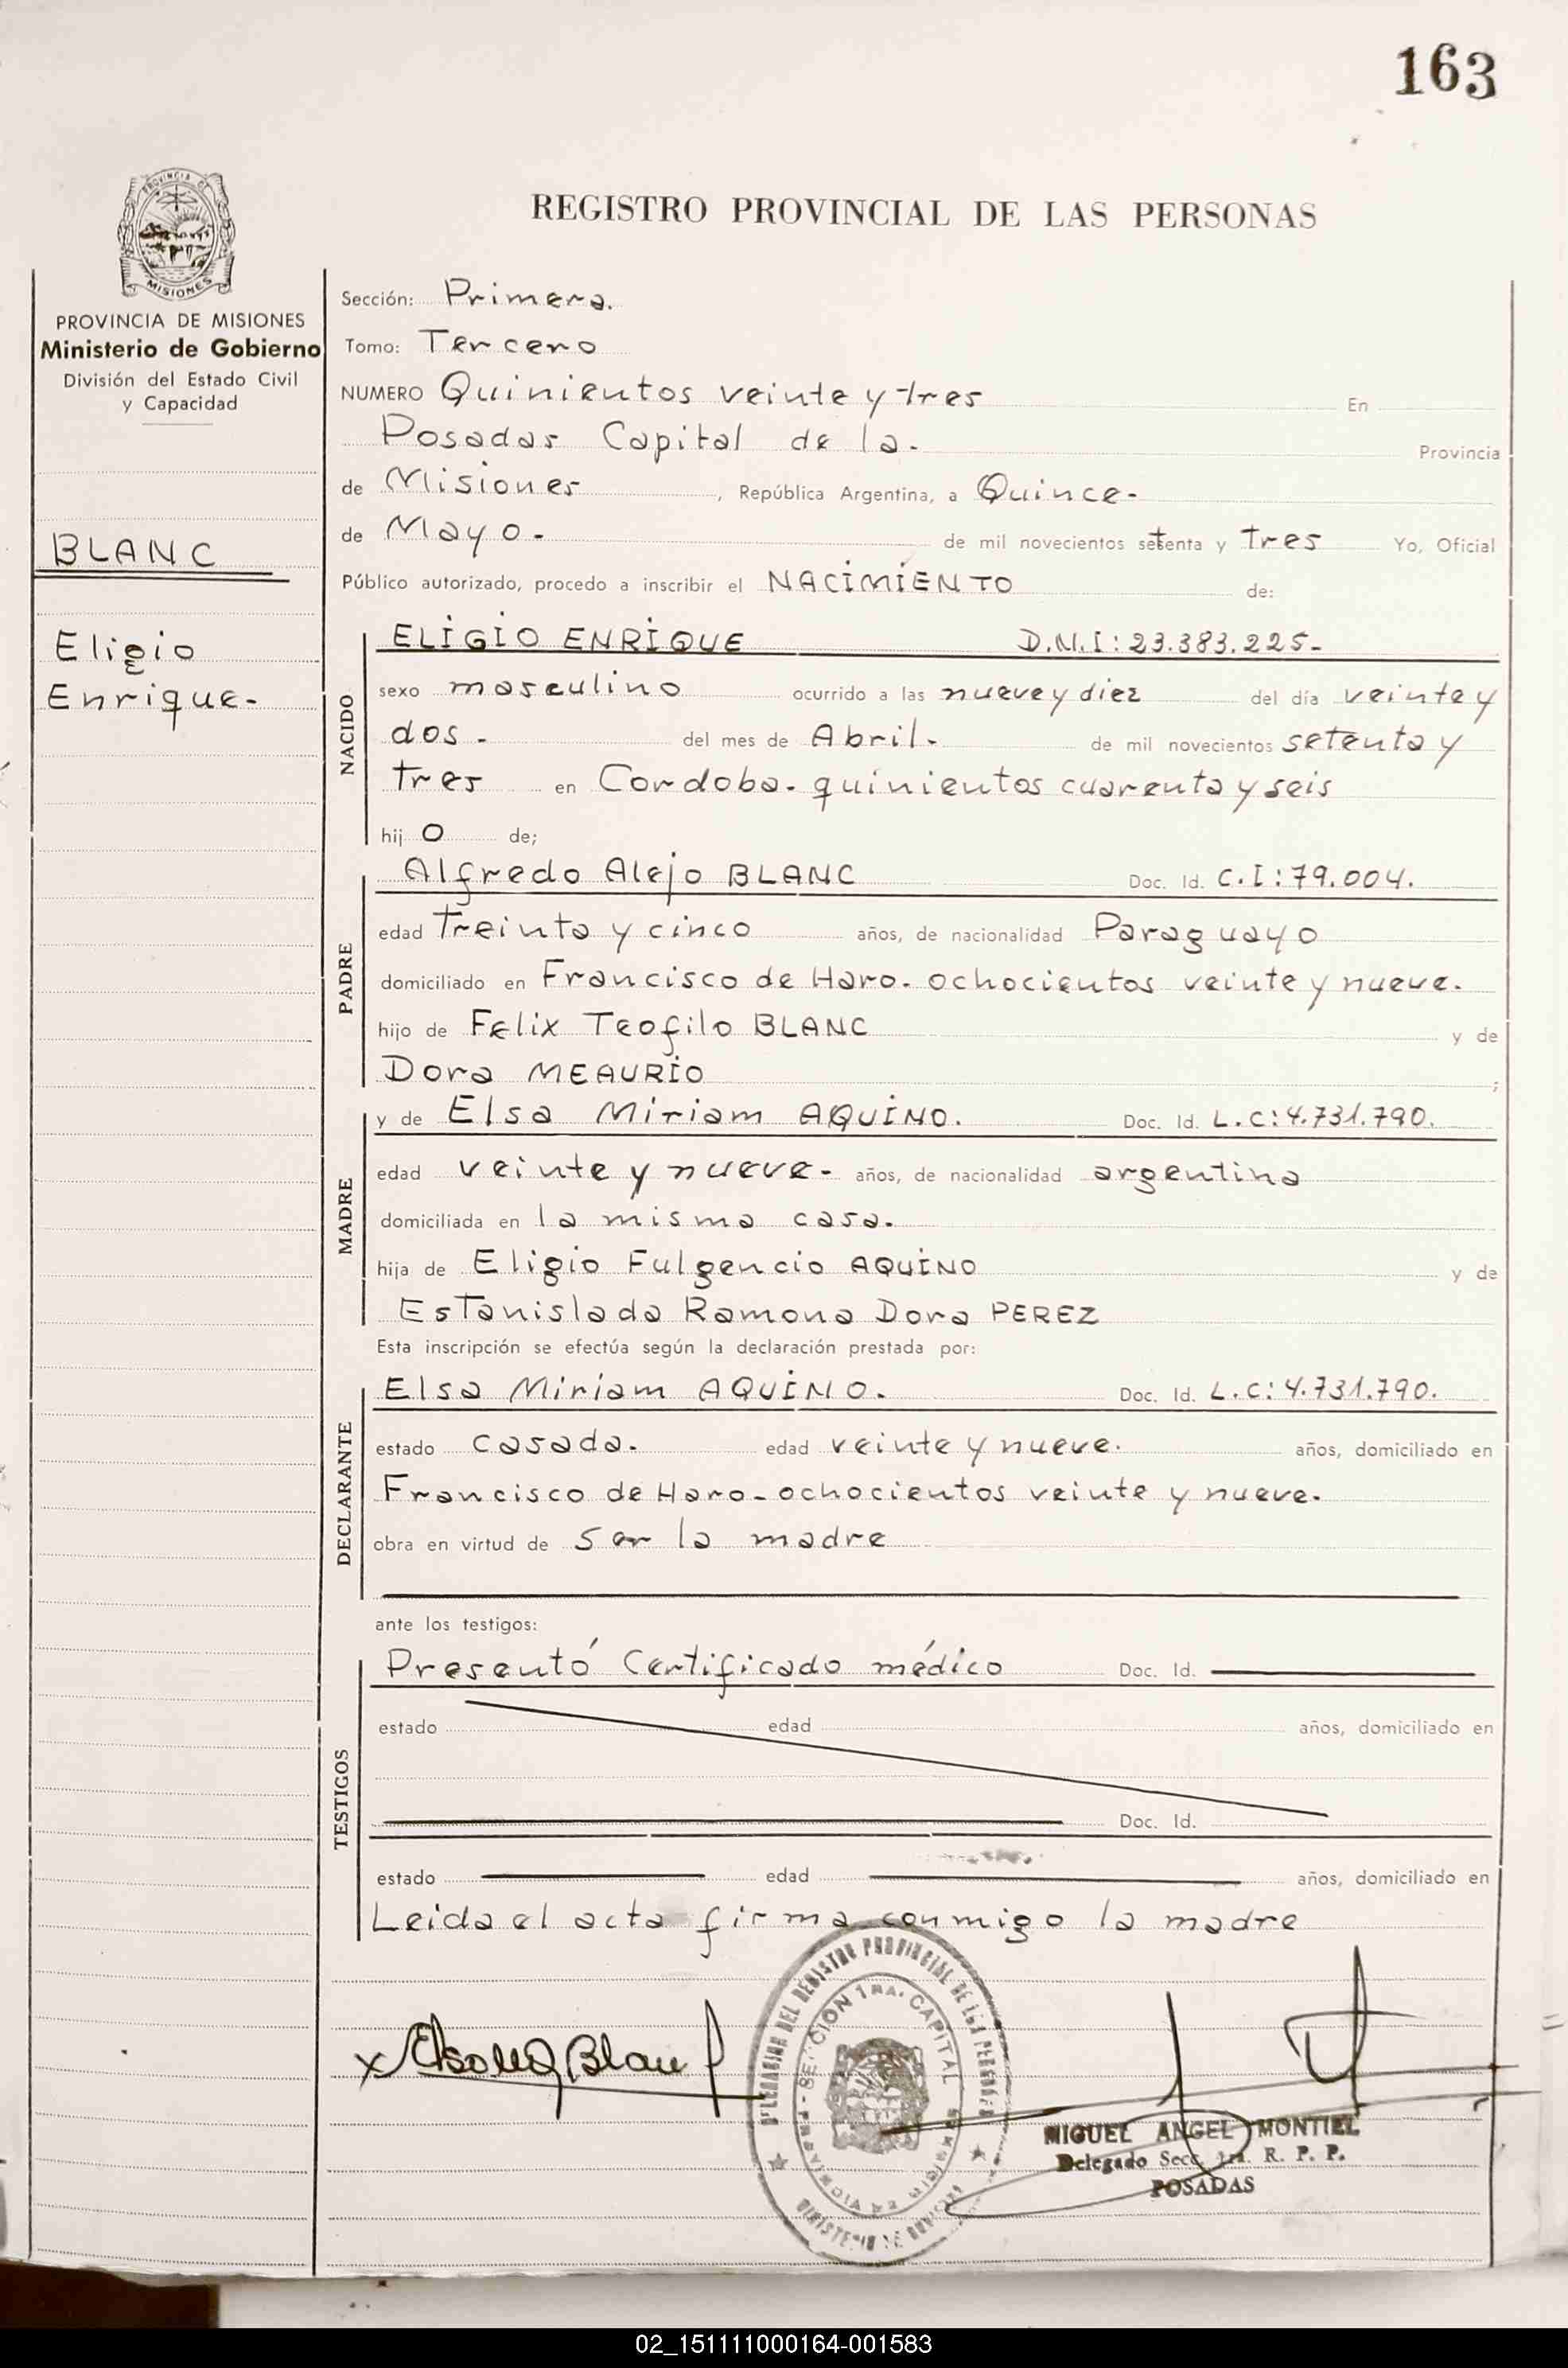 163
PROVINCIA DE
MISIONES
REGISTRO PROVINCIAL DE LAS PERSONAS
PROVINCIA DE MISIONES
Ministerio de Gobierno
División del Estado Civil
y Capacidad
BLANC
Eligio
Enrique-
Sección: Primera.
Tomo: Tercero
NUMERO Quinientos veinte y tres En
Posadas Capital de la. Provincia
de Misiones, República Argentina, a Quince-
de Mayo- de mil novecientos setenta y tres Yo, Oficial
Público autorizado, procedo a inscribir el NACIMIENTO de:
NACIDO
ELIGIO ENRIQUE D.N.I: 23.383.225-
sexo masculino ocurrido a las nueve y diez del día veinte y
dos- del mes de Abril- de mil novecientos setenta y
tres en Cordoba- quinientos cuarenta y seis
hij o de;
PADRE
Alfredo Alejo BLANC Doc. Id. C.I: 79.004.
edad Treinta y cinco años, de nacionalidad Paraguayo
domiciliado en Francisco de Haro- ochocientos veinte y nueve.
hijo de Felix Teofilo BLANC y de
Dora MEAURIO ;
MADRE
y de Elsa Miriam AQUINO. Doc. Id. L.C: 4.731.790.
edad veinte y nueve- años, de nacionalidad argentina
domiciliada en la misma casa.
hija de Eligio Fulgencio AQUINO y de
Estanislada Ramona Dora PEREZ
Esta inscripción se efectúa según la declaración prestada por:
DECLARANTE
Elsa Miriam AQUINO. Doc. Id. L.C: 4.731.790.
estado casada. edad veinte y nueve. años, domiciliado en
Francisco de Haro- ochocientos veinte y nueve.
obra en virtud de ser la madre
ante los testigos:
TESTIGOS
Presentó Certificado médico Doc. Id.
estado edad años, domiciliado en
Doc. Id.
estado edad años, domiciliado en
Leida el acta firma conmigo la madre
DELEGACION DEL REGISTRO PROVINCIAL DE LAS PERSONAS
SECCION 1RA. CAPITAL
PROVINCIA DE MISIONES
MINISTERIO DE GOBIERNO
x Blanc
MIGUEL ANGEL MONTIEL
Delegado Secc. 1ra. R. P. P.
POSADAS
02_151111000164-001583